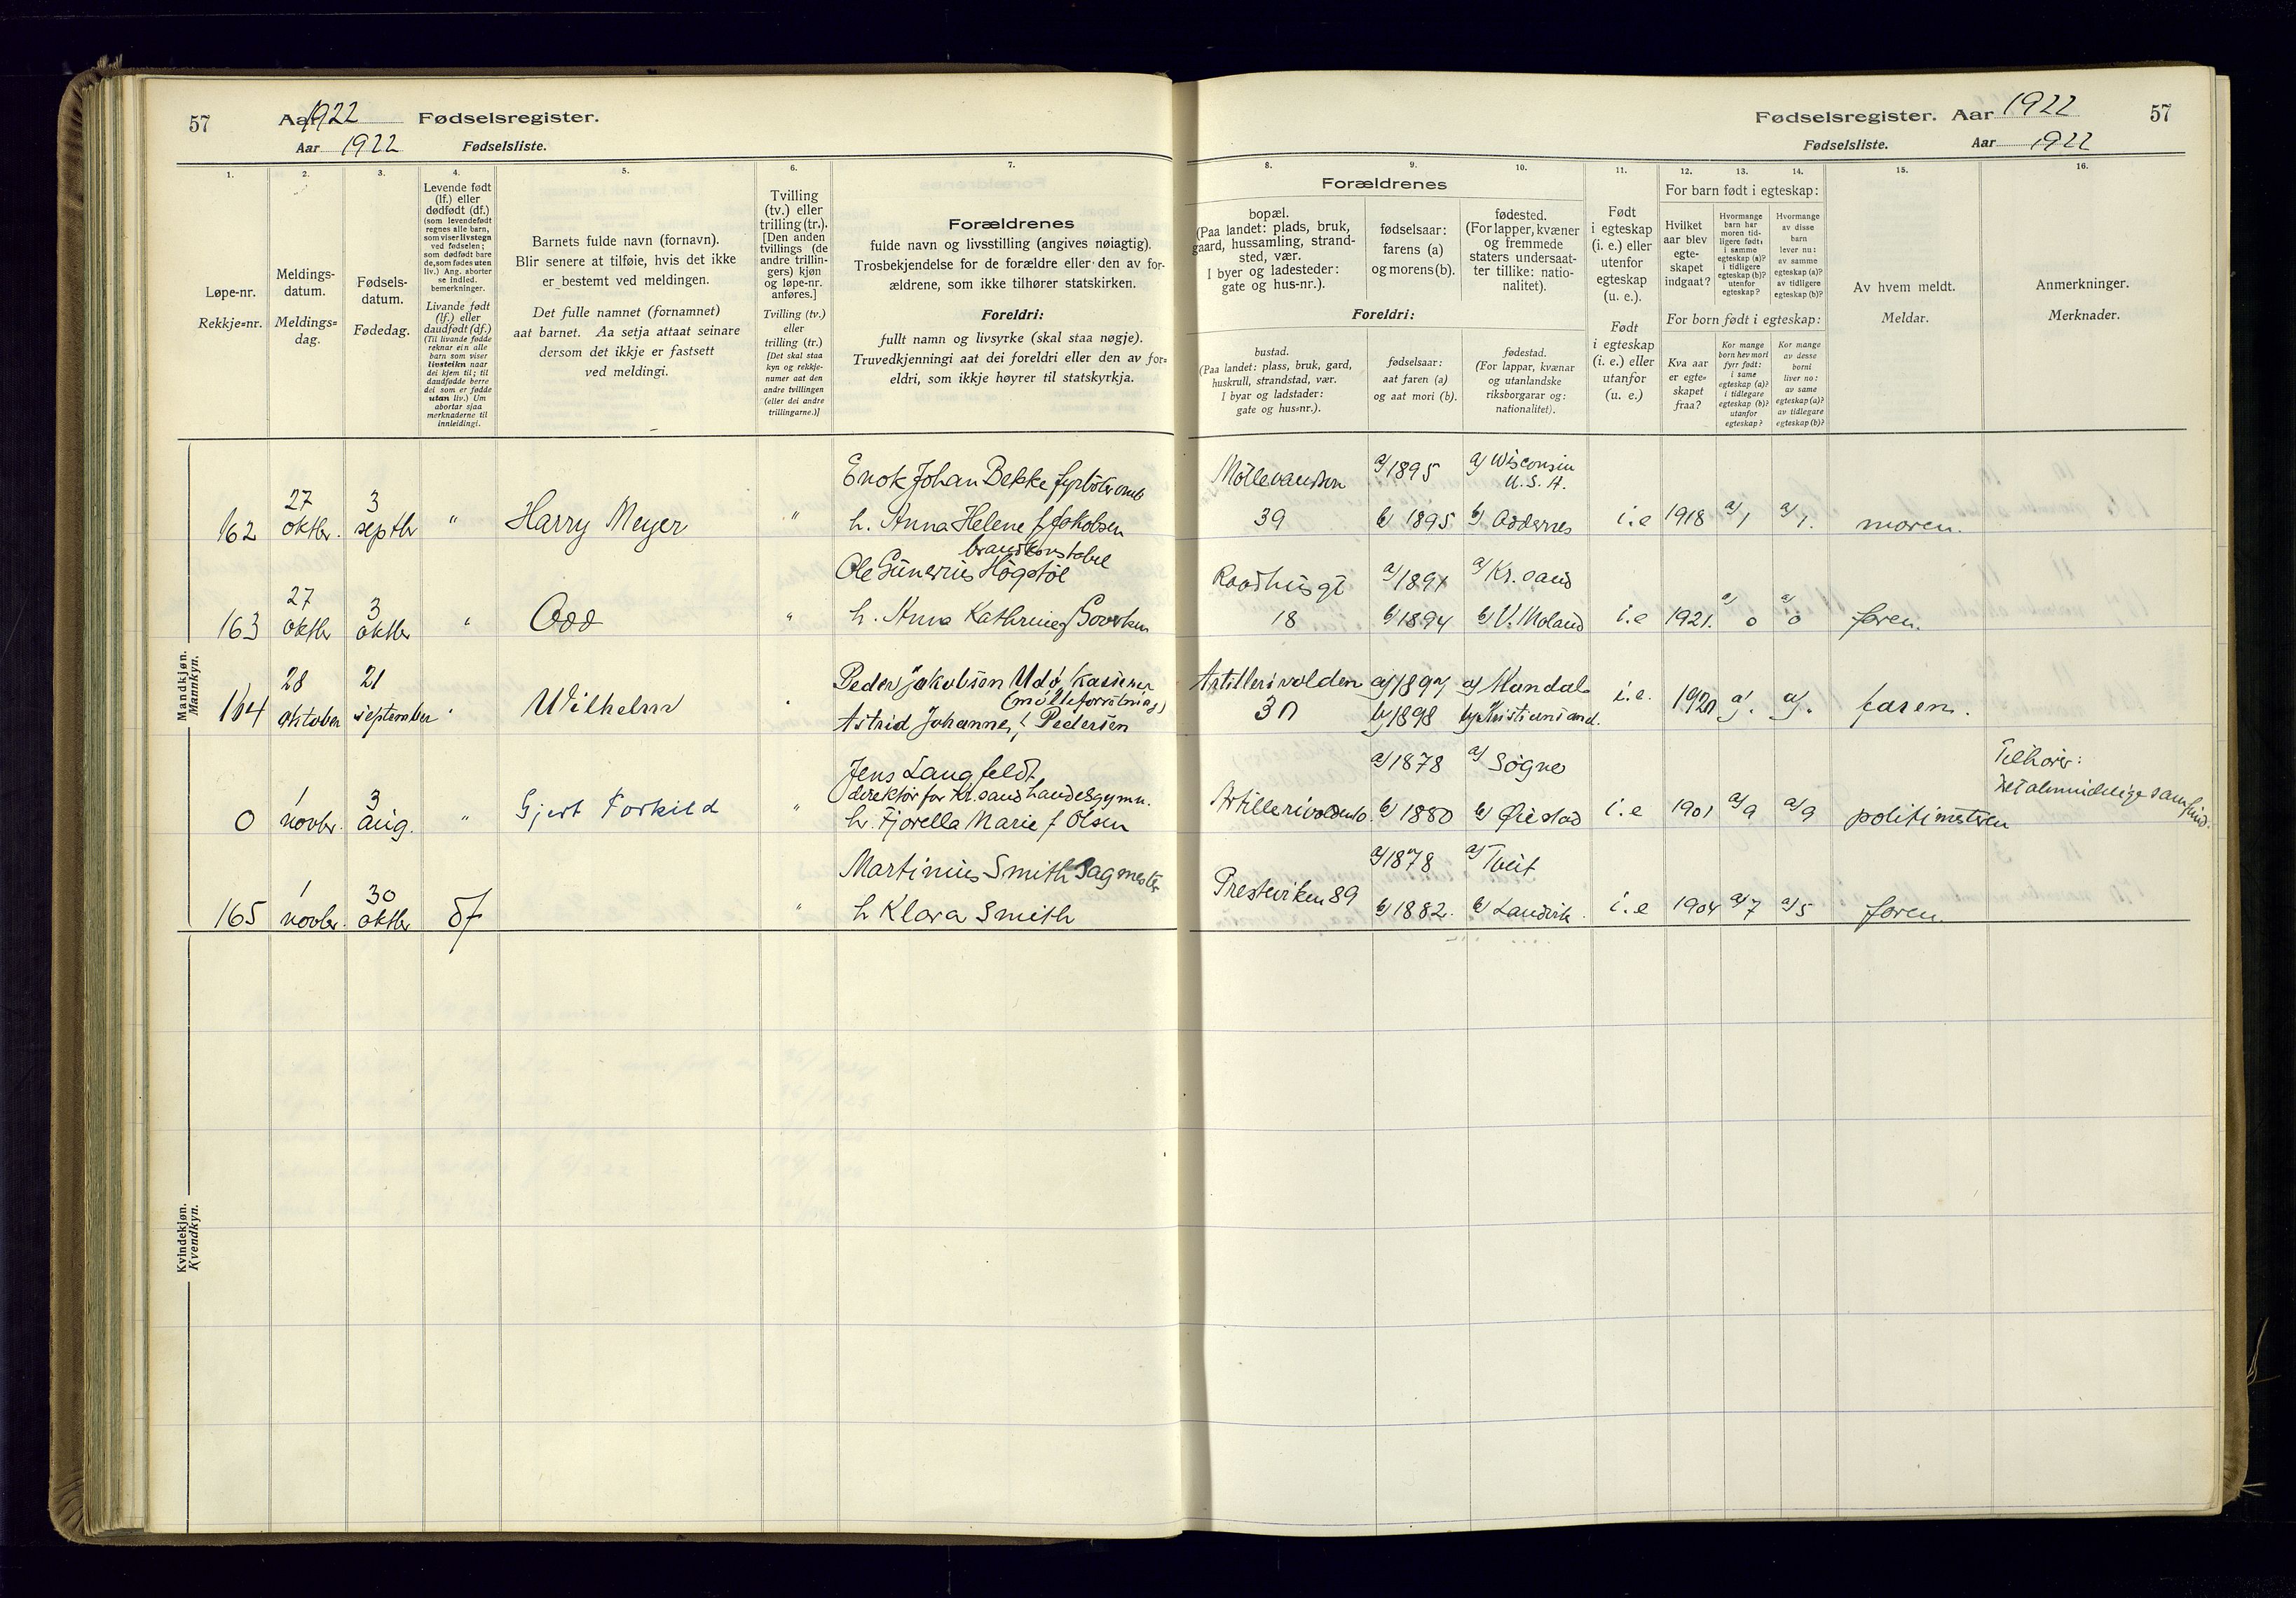 57 Aar 1922 Fødselsregister.
Aar 1922 Fødselsliste.
1. 2. 3. 4. 5. 6. 7.
Løpe-nr.
Rekkje=nr.
Meldings-
datum.
Meldings=
dag.
Fødsels-
datum.
Fødedag.
Levende født
(lf.) eller
dødfødt (df.)
(som levendefødt
regnes alle barn,
som viser livstegn
ved fødselen;
som dødfødt bare
de, som fødes uten
liv.) Ang. aborter
se indled.
bemerkninger.
Livande født
(lf.) eller
daudfødt (df.)
(Til livande fødde
reknar ein alle
barn som viser
livsteikn naar
dei kjem til; til
daudfødde berre
dei som er fødde
utan liv.) Um
abortar sjaa
merknaderne til
innleidingi.
Barnets fulde navn (fornavn).
Blir senere at tilføie, hvis det ikke
er bestemt ved meldingen.
Det fulle namnet (fornamnet)
aat barnet. Aa setja attaat seinare
dersom det ikkje er fastsett
ved meldingi.
Tvilling
(tv.) eller
trilling (tr.).
[Den anden
tvillings (de
andre trillin-
gers) kjøn
og løpe-nr.
anføres.]
Tvilling (tv.)
eller
trilling (tr.)
[Det skal staa
kyn og rekkje-
numer aat den
andre tvillingen
(eller dei andre
trillingarne.)]
Forældrenes
fulde navn og livsstilling (angives nøiagtig).
Trosbekjendelse for de forældre eller den av for-
ældrene, som ikke tilhører statskirken.
Foreldri:
fullt namn og livsyrke (skal staa nøgje).
Truvedkjenningi aat dei foreldri eller den av for-
eldri, som ikkje høyrer til statskyrkja.
Mandkjøn.
Mannkyn.
Enok Johan Bekke
162 27 oktbr. 3 septbr " Harry Meyer " h. Anna Helene f Jakobsen
brandkonstabel
Ole Gunerius Høgstøl
163 27 oktbr 3 oktbr " Odd " h. Anna Kathrine f
Peder Jakobsen Udø, kasserer
164 28 oktober 21 september " Wilhelm "
Astrid Johanne f. Pedersen
Jens Langfeldt
direktør for Kr.sand handelsgymn.
0 1 novbr. 3 aug. " Gjert Torkild " h. Fjorella Marie f Olsen
Martinius Smith Sagmester
165 1 novbr. 30 oktbr df " h Klara Smith
Kvindekjøn.
Kvendkyn.
Fødselsregister. Aar 1922 57
Fødselsliste. Aar 1922
8. 9. 10. 11. 12. 13. 14. 15. 16.
Forældrenes
bopæl.
(Paa landet: plads, bruk,
gaard, hussamling, strand-
sted, vær.
I byer og ladesteder:
gate og hus-nr.).
fødselsaar:
farens (a)
og morens (b).
fødested.
(For lapper, kvæner
og fremmede
staters undersaat-
ter tillike: natio-
nalitet).
Foreldri:
bustad.
(Paa landet: plass, bruk, gard,
huskrull, strandstad, vær.
I byar og ladstader:
gate og hus=nr.).
fødselsaar:
aat faren (a)
og aat mori (b).
fødestad.
(For lappar, kvænar
og utanlandske
riksborgarar og:
nationalitet).
Født
i egteskap
(i. e.) eller
utenfor
egteskap
(u. e.).
Født
i egteskap
(i. e.) eller
utanfor
(u. e.)
For barn født i egteskap:
Hvilket
aar blev
egte-
skapet
indgaat?
Hvormange
barn har
moren tid-
ligere født:
i samme
egteskap (a)?
i tidligere
egteskap (b)?
utenfor
egteskap?
Hvormange
av disse
barn
lever nu:
av samme
egteskap (a)?
av tidligere
egteskap (b)?
For born født i egteskap:
Kva aar
er egte=
skapet
fraa?
Kor mange
born hev mori
fyrr født:
i same
egteskap (a)?
i tidlegare
egteskap (b)?
utanfor
egteskap?
Kor mange
av desse
borni
liver no:
av same
egteskap (a)?
av tidlegare
egteskap (b)?
Av hvem meldt.
Meldar.
Anmerkninger.
Merknader.
Møllevandsvn a) 1895 a) Wisconsin
U. S. A.
39 b) 1895 b) Oddernes i.e 1918 a) 1 a) 1. moren.
Raadhusgt a) 1891 a) Kr. sand
18 b) 1894 b) V. Moland i.e 1921. a) 0 a) 0 faren.
Artillerivolden a) 1897 a) Mandal
30 b) 1898 b) Kristiansand. i.e. 1920 a). a). faren.
a) 1878 a) Søgne Tilhører:
Artillerivolden 10. b) 1880 b) Øiestad i.e 1901 a) 9 a) 9 politimesteren Det almindelige samfund.
a) 1878 a) Tveit
Presteviken 89 b) 1882. b) Landvik. i.e 1904 a) 7 a) 5 faren.